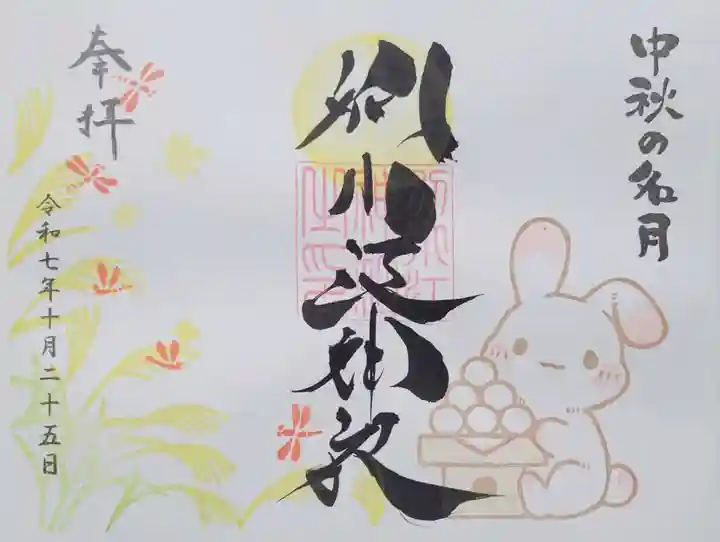 中秋の名月
別小江神社
奉拝
令和七年十月二十五日